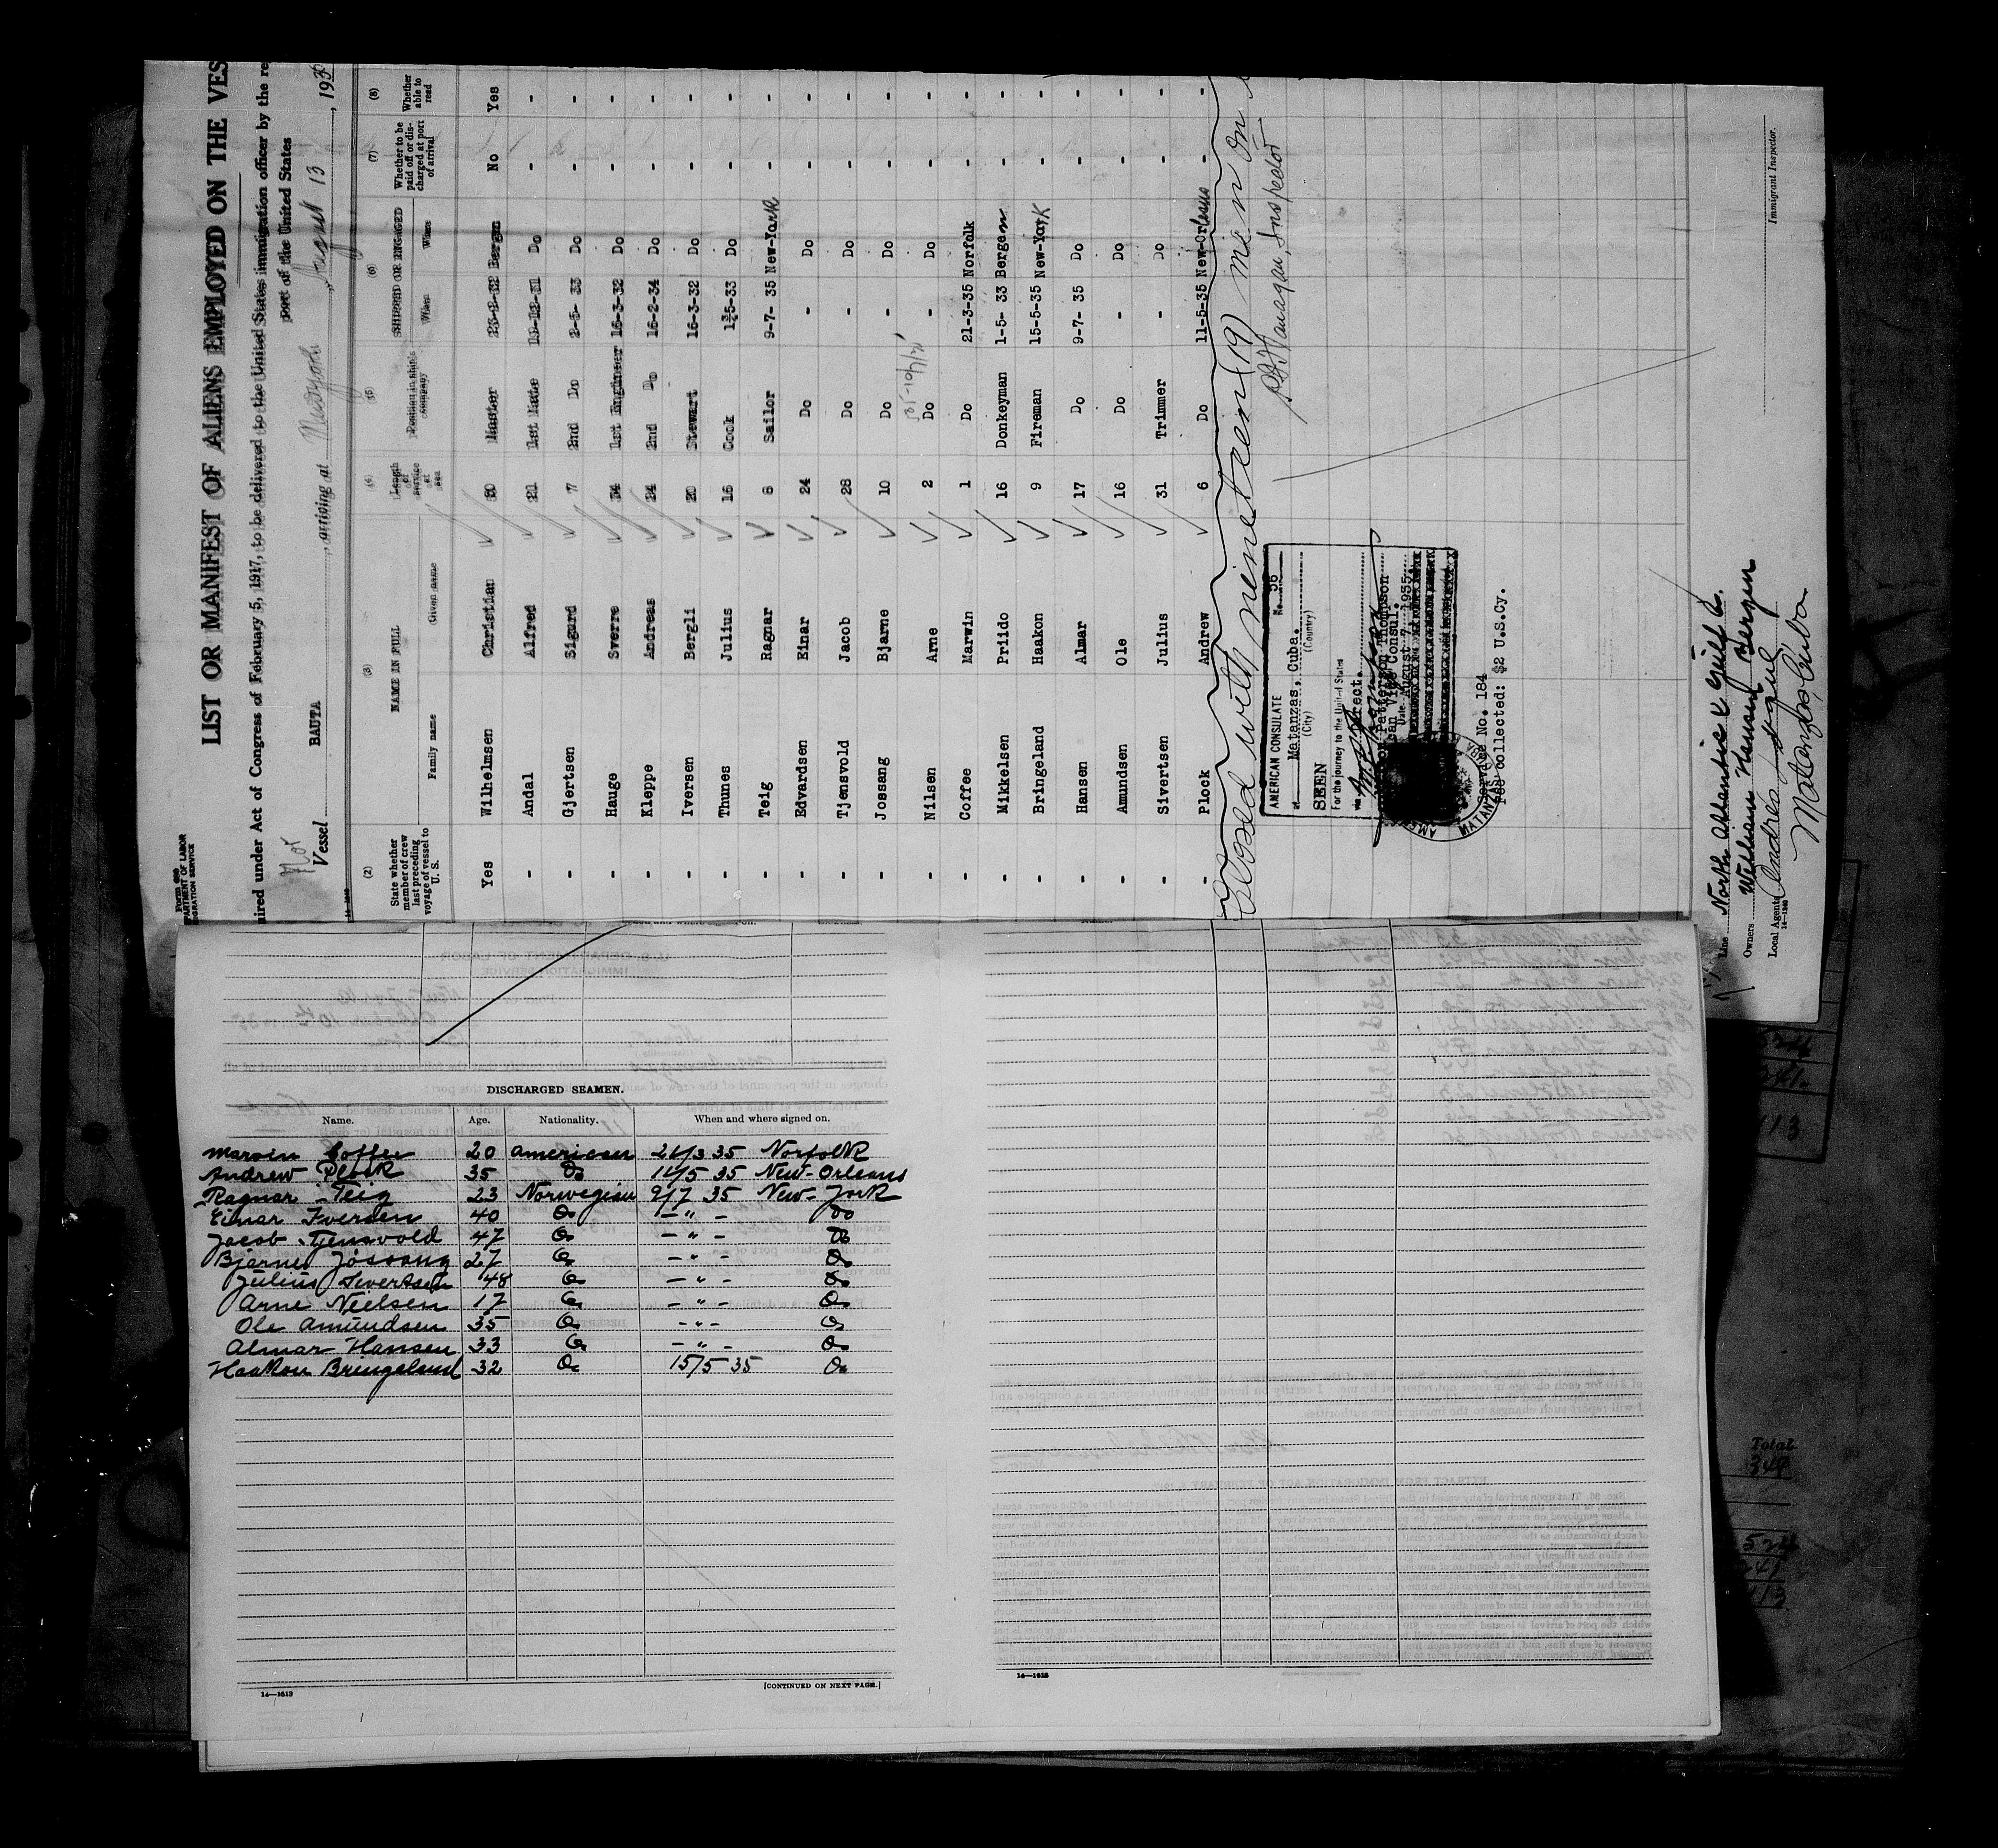 Form 680
LIST OR MANIFEST OF ALIENS EMPLOYED ON THE VES
uired under Act of Congress of February 5, 1917, to be delivered to the United States immigration officer by the re
port of the United States
Nor
Vessel BAUTA , arriving at Newyork , August 13 , 1935
(2) (3) (4) (5) (6) (7) (8)
State whether member of crew last preceding voyage of vessel to U. S. NAME IN FULL Family name Given name Length of service at sea Position in ship's company SHIPPED OR ENGAGED When Where Whether to be paid off or discharged at port of arrival Whether able to read
Yes Wilhelmsen Christian 30 Master 23-2-32 Bergen No Yes
- Andal Alfred 21 1st Mate Do - -
- Gjertsen Sigurd 7 2nd Do 2-5- 33 Do - -
- Hauge Sverre 34 1st Engineer 16-3-32 Do - -
- Kleppe Andreas 24 2nd Do 16-2-34 Do - -
- Iversen Bergli 20 Stewart 16-3-32 Do - -
- Thunes Julius 16 Cook Do - -
- Teig Ragnar 8 Sailor 9-7- 35 New-York - -
- Edvardsen Einar 24 Do - Do - -
- Tjensvold Jacob 28 Do - Do - -
- Jossang Bjarne 10 Do - Do - -
- Nilsen Arne 2 Do - Do - -
- Coffee Marwin 1 Do 21-3-35 Norfolk - -
- Mikkelsen Priido 16 Donkeyman 1-5- 33 Bergen - -
- Bringeland Haakon 9 Fireman 15-5-35 New-York - -
- Hansen Almar 17 Do 9-7- 35 Do - -
- Amundsen Ole 16 Do - Do - -
- Sivertsen Julius 31 Trimmer - Do - -
- Plock Andrew 6 Do 11-5-35 New-Orleans - -
Closed with nineteen (19) men on
Inspector
AMERICAN CONSULATE No. 56
at Matanzas, Cuba.
(City) (Country)
SEEN
For the journey to the United States
via direct.
Patterson Thompson
Vice Consul.
Date August 7, 1935.
Service No. 184
Fee collected: $2 U.S.Cy.
Line North Atlantic & Gulf Co.
Owners William Hansen Bergen
Local Agents Andres Luque
Matanzas, Cuba
Immigrant Inspector.
14—1240
DISCHARGED SEAMEN.
Name. Age. Nationality. When and where signed on.
Marvin Coffee 20 American 21/3 35 Norfolk
Andrew Plock 35 Do 11/5 35 New-Orleans
Ragnar Teig 23 Norwegian 9/7 35 New-York
Einar Iversen 40 Do — " — Do
Jacob Tjensvold 47 Do — " — Do
Bjarne Jossang 27 Do — " — Do
Julius Sivertsen 48 Do — " — Do
Arne Nielsen 17 Do — " — Do
Ole Amundsen 35 Do — " — Do
Almar Hansen 33 Do — " — Do
Haakon Bringeland 32 Do 15/5 35 Do
14—1613
[CONTINUED ON NEXT PAGE.]
14—1613
524
241.
113
Total
348
524
241
113